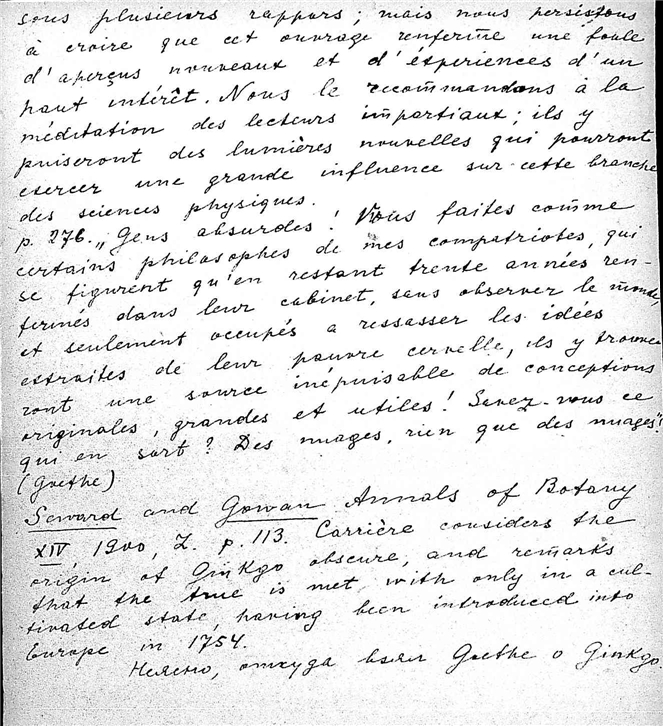 sous plusieurs rapports; mais nous persistons
à croire que cet ouvrage renferme une foule
d'aperçus nouveaux et d'éxperiences d'un
haut intérêt. Nous le recommandons à la
méditation des lecteurs impartiaux; ils y
puiseront des lumières nouvelles qui pourront
exercer une grande influence sur cette branche
des sciences physiques.
p. 276. „Gens absurdes! Vous faites comme
certains philosophes de mes compatriotes, qui
se figurent qu'en restant trente années ren-
fermés dans leur cabinet, sans observer le monde,
et seulement occupés a ressasser les idées
extraites de leur pauvre cervelle, ils y trouve
ront une source inépuisable de conceptions
originales, grandes et utiles! Savez-vous ce
qui en sort? Des nuages, rien que des nuages"!
(Goethe)
Seward and Gowan Annals of Botany
XIV, 1900, p. 113. Carrière considers the
origin of Ginkgo obscure, and remarks
that the true is met with only in a cul-
tivated state, having been introduced into
Europe in 1754.
Неясно, откуда взял Goethe о Ginkgo.